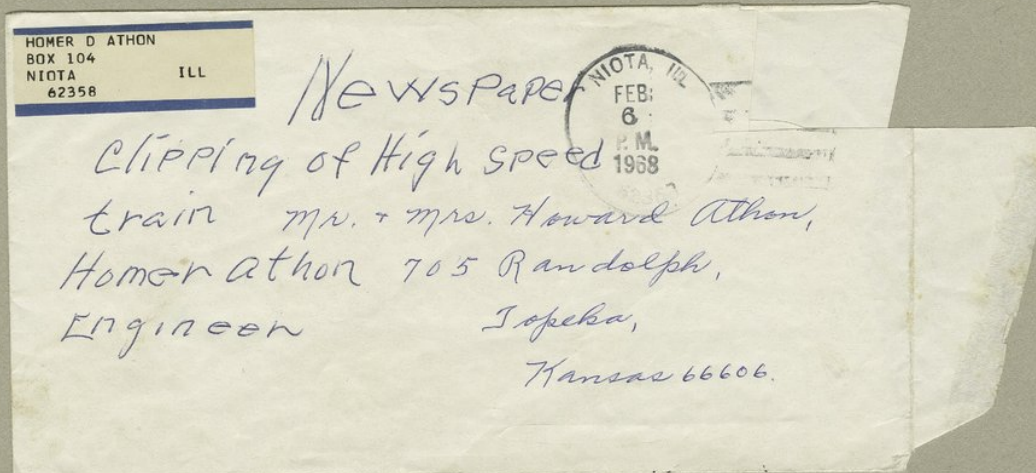 HOMER D ATHON
BOX 104
NIOTA ILL
62358
NIOTA, ILL
FEB
6
P.M.
1968
Newspaper
Clipping of High Speed
train
Homer Athon
Engineer
Mr. + Mrs. Howard Athon,
705 Randolph,
Topeka,
Kansas 66606.